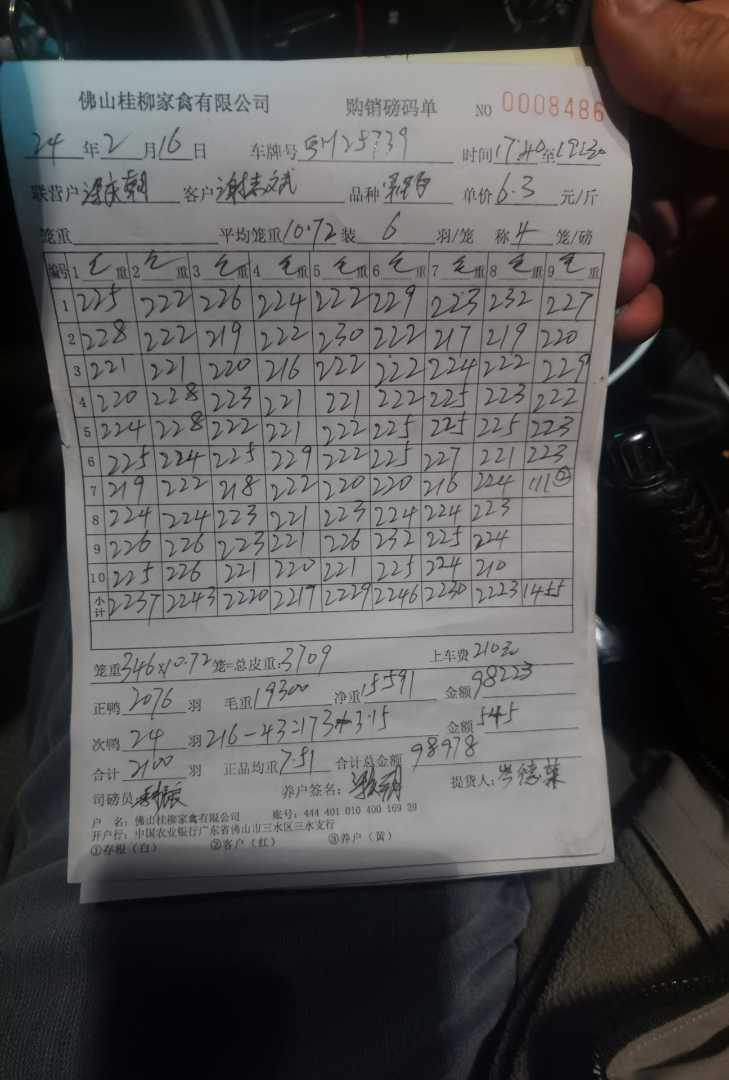 佛山桂柳家禽有限公司 购销磅码单 NO 0008486
24年2月16日 车牌号 时间17:40至
联营户 客户谢志斌 品种 单价6.3元/斤
笼重 平均笼重10.72装6羽/笼 称4笼/磅
编号 1毛重 2毛重 3毛重 4毛重 5毛重 6毛重 7毛重 8毛重 9毛重
1 225 222 226 224 222 229 223 232 227
2 228 222 219 222 230 222 217 219 220
3 221 221 220 216 222 222 224 222 229
4 220 228 223 221 221 222 225 223 222
5 224 228 222 221 222 225 225 225 223
6 225 224 225 229 222 225 227 221 223
7 219 222 218 222 220 220 216 224 111②
8 224 224 223 221 223 224 224 223
9 226 226 223 221 226 232 225 224
10 225 226 221 220 221 225 224 210
小计 2237 2243 2220 2217 2229 2246 2230 2223 1455
笼重346×10.72笼=总皮重:3709 上车费210元
正鸭2076羽 毛重19300 净重15591 金额98223
次鸭24羽216-43=173×3.15 金额545
合计2100羽 正品均重7.51 合计总金额98978
司磅员 养户签名: 提货人:岑德荣
户 名:佛山桂柳家禽有限公司 账号:444 401 010 400 169 29
开户行:中国农业银行广东省佛山市三水区三水支行
①存根(白) ②客户(红) ③养户(黄)